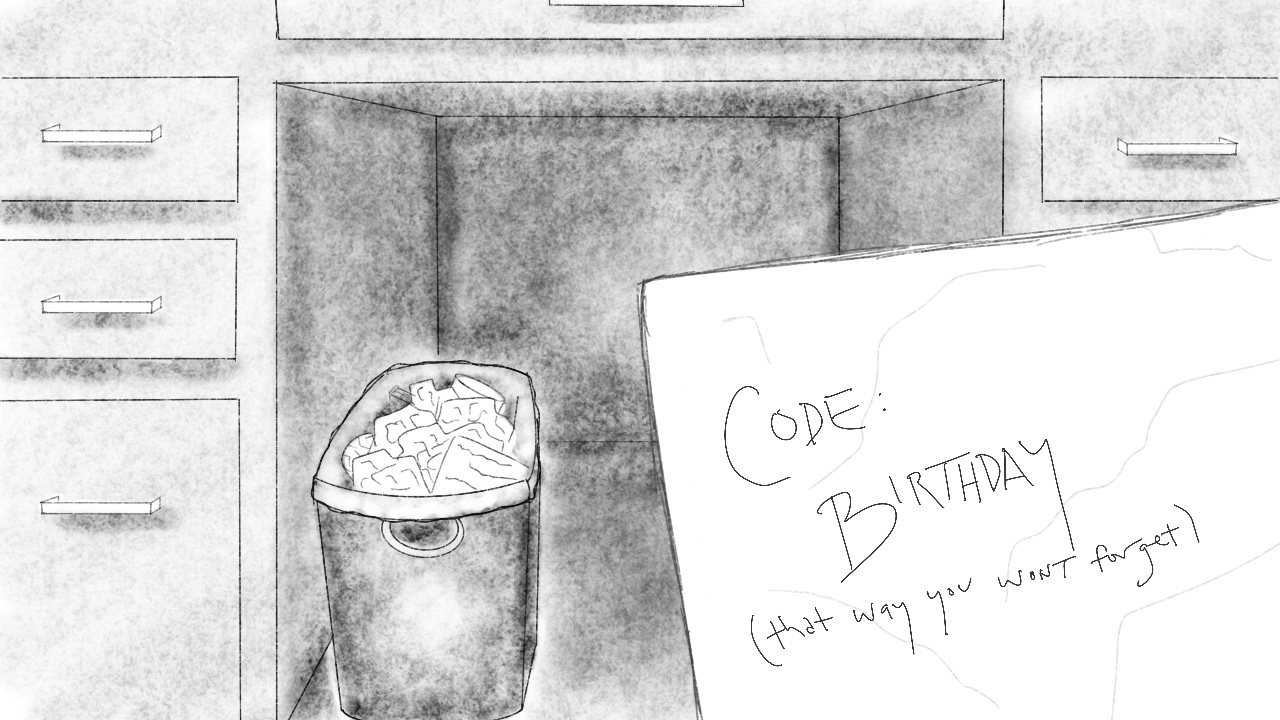 CODE:
BIRTHDAY
(that way you wont forget)